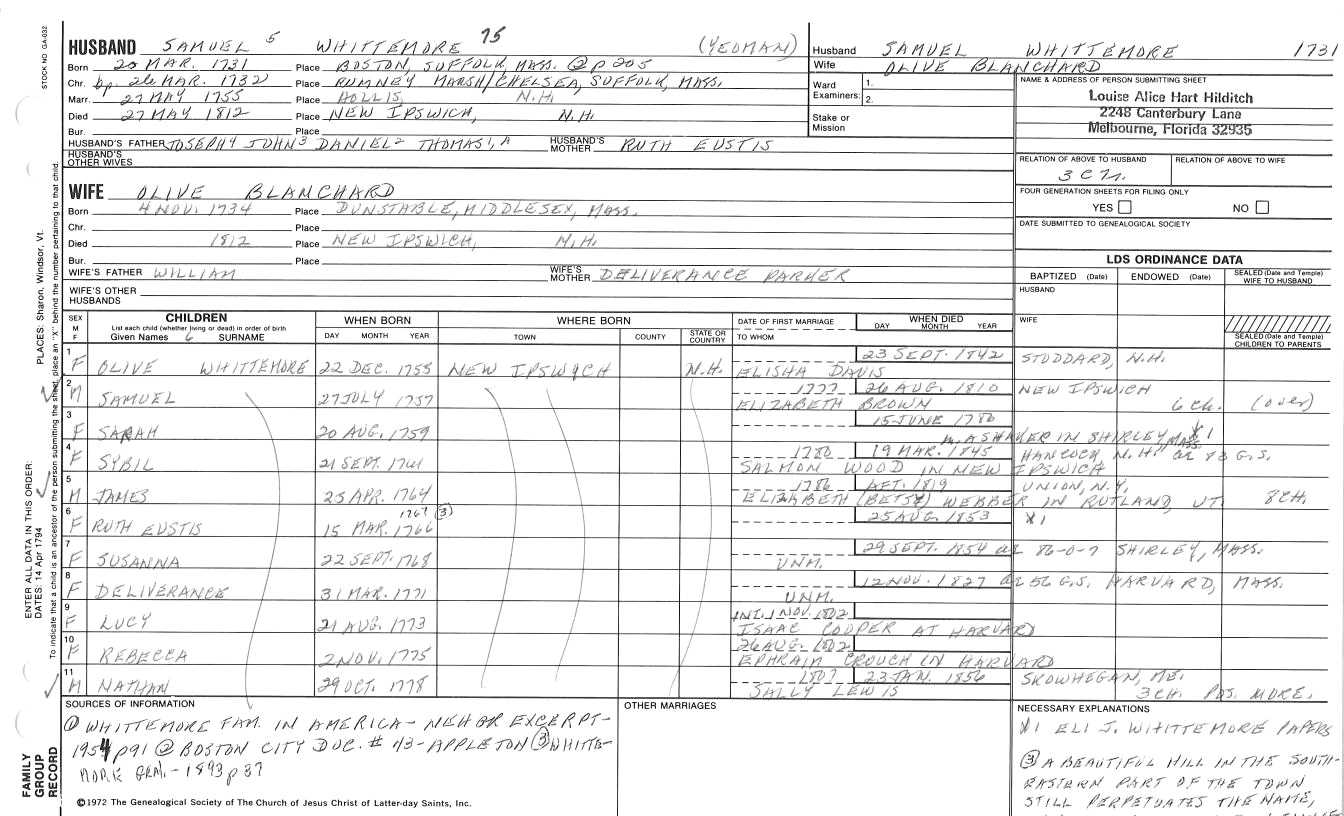 STOCK NO. GA-032
PLACES: Sharon, Windsor, Vt.
ENTER ALL DATA IN THIS ORDER:
DATES: 14 Apr 1794
To indicate that a child is an ancestor of the person submitting the sheet, place an "X" behind the number pertaining to that child.
FAMILY GROUP RECORD
HUSBAND SAMUEL 5 WHITTEMORE 75 (YEOMAN)
Born 20 MAR. 1731 Place BOSTON, SUFFOLK, MASS. @ p 205
Chr. bp. 26 MAR. 1732 Place RUMNEY MARSH/CHELSEA, SUFFOLK, MASS.
Marr. 27 MAY 1755 Place HOLLIS, N.H.
Died 27 MAY 1812 Place NEW IPSWICH, N.H.
Bur. Place
HUSBAND'S FATHER JOSEPH 4 JOHN 3 DANIEL 2 THOMAS 1, A HUSBAND'S MOTHER RUTH EUSTIS
HUSBAND'S OTHER WIVES
WIFE OLIVE BLANCHARD
Born 4 NOV. 1734 Place DUNSTABLE, MIDDLESEX, MASS.
Chr. Place
Died 1812 Place NEW IPSWICH, N.H.
Bur. Place
WIFE'S FATHER WILLIAM WIFE'S MOTHER DELIVERANCE PARKER
WIFE'S OTHER HUSBANDS
Husband SAMUEL WHITTEMORE 1731
Wife OLIVE BLANCHARD
Ward Examiners: 1. 2.
Stake or Mission
NAME & ADDRESS OF PERSON SUBMITTING SHEET
Louise Alice Hart Hilditch
2248 Canterbury Lane
Melbourne, Florida 32935
RELATION OF ABOVE TO HUSBAND RELATION OF ABOVE TO WIFE
FOUR GENERATION SHEETS FOR FILING ONLY
YES NO
DATE SUBMITTED TO GENEALOGICAL SOCIETY
LDS ORDINANCE DATA
BAPTIZED (Date) ENDOWED (Date) SEALED (Date and Temple) WIFE TO HUSBAND
HUSBAND
WIFE
SEALED (Date and Temple) CHILDREN TO PARENTS
SEX M F
CHILDREN
List each child (whether living or dead) in order of birth
Given Names 6 SURNAME
WHEN BORN DAY MONTH YEAR
WHERE BORN TOWN COUNTY STATE OR COUNTRY
DATE OF FIRST MARRIAGE TO WHOM
WHEN DIED DAY MONTH YEAR
1 F OLIVE WHITTEMORE 22 DEC. 1755 NEW IPSWICH N.H. ELISHA DAVIS 23 SEPT. 1842 STODDARD, N.H.
2 M SAMUEL 27 JULY 1757 1777 ELIZABETH BROWN 26 AUG. 1810 NEW IPSWICH 6 CH. (over)
3 F SARAH 20 AUG. 1759 15 JUNE 1780 A SHAKER IN SHIRLEY, MASS. X1
4 F SYBIL 21 SEPT. 1761 1780 SALMON WOOD IN NEW IPSWICH 19 MAR. 1845 HANCOCK, N.H. ae 83 G.S.
5 M JAMES 25 APR. 1764 1786 ELIZABETH (BETSY) WEBBER IN RUTLAND, VT. AFT. 1819 UNION, N.Y. 8 CH.
6 F RUTH EUSTIS 15 MAR. 1766 1767 (3) 25 AUG. 1853 X1
7 F SUSANNA 22 SEPT. 1768 UNM. 29 SEPT. 1854 ae 86-0-7 SHIRLEY, MASS.
8 F DELIVERANCE 31 MAR. 1771 UNM. 12 NOV. 1827 ae 56 G.S. HARVARD, MASS.
9 F LUCY 21 AUG. 1773 INT. 1 NOV. 1802 ISAAC COOPER AT HARVARD
10 F REBECCA 2 NOV. 1775 26 AUG. 1802 EPHRAIM CROUCH IN HARVARD
11 M NATHAN 29 OCT. 1778 1807 SALLY LEWIS 23 JAN. 1856 SKOWHEGAN, ME. 3 CH. POS. MORE.
SOURCES OF INFORMATION
① WHITTEMORE FAM. IN AMERICA- NEHGR EXCERPT-
1954 p91 @ BOSTON CITY DOC. # 43- APPLETON ③ WHITTE-
MORE GEN.- 1893 p 87
©1972 The Genealogical Society of The Church of Jesus Christ of Latter-day Saints, Inc.
OTHER MARRIAGES
NECESSARY EXPLANATIONS
X1 ELI J. WHITTEMORE PAPERS
③ A BEAUTIFUL HILL IN THE SOUTH-
EASTERN PART OF THE TOWN
STILL PERPETUATES THE NAME,